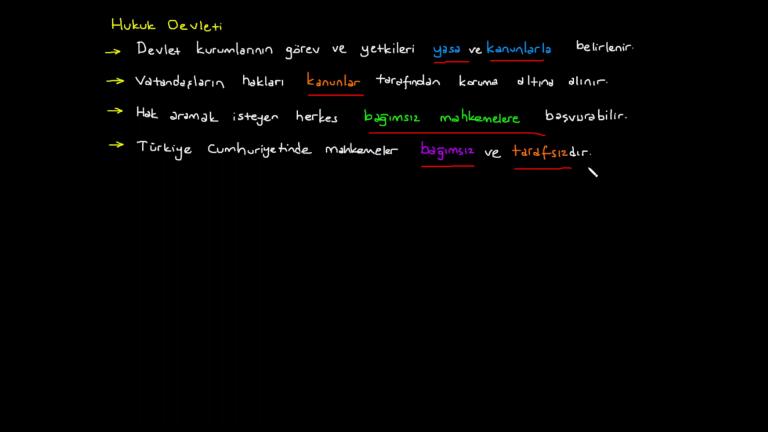 Hukuk Devleti
→ Devlet kurumlarının görev ve yetkileri yasa ve kanunlarla belirlenir.
→ Vatandaşların hakları kanunlar tarafından koruma altına alınır.
→ Hak aramak isteyen herkes bağımsız mahkemelere başvurabilir.
→ Türkiye Cumhuriyetinde mahkemeler bağımsız ve tarafsızdır.